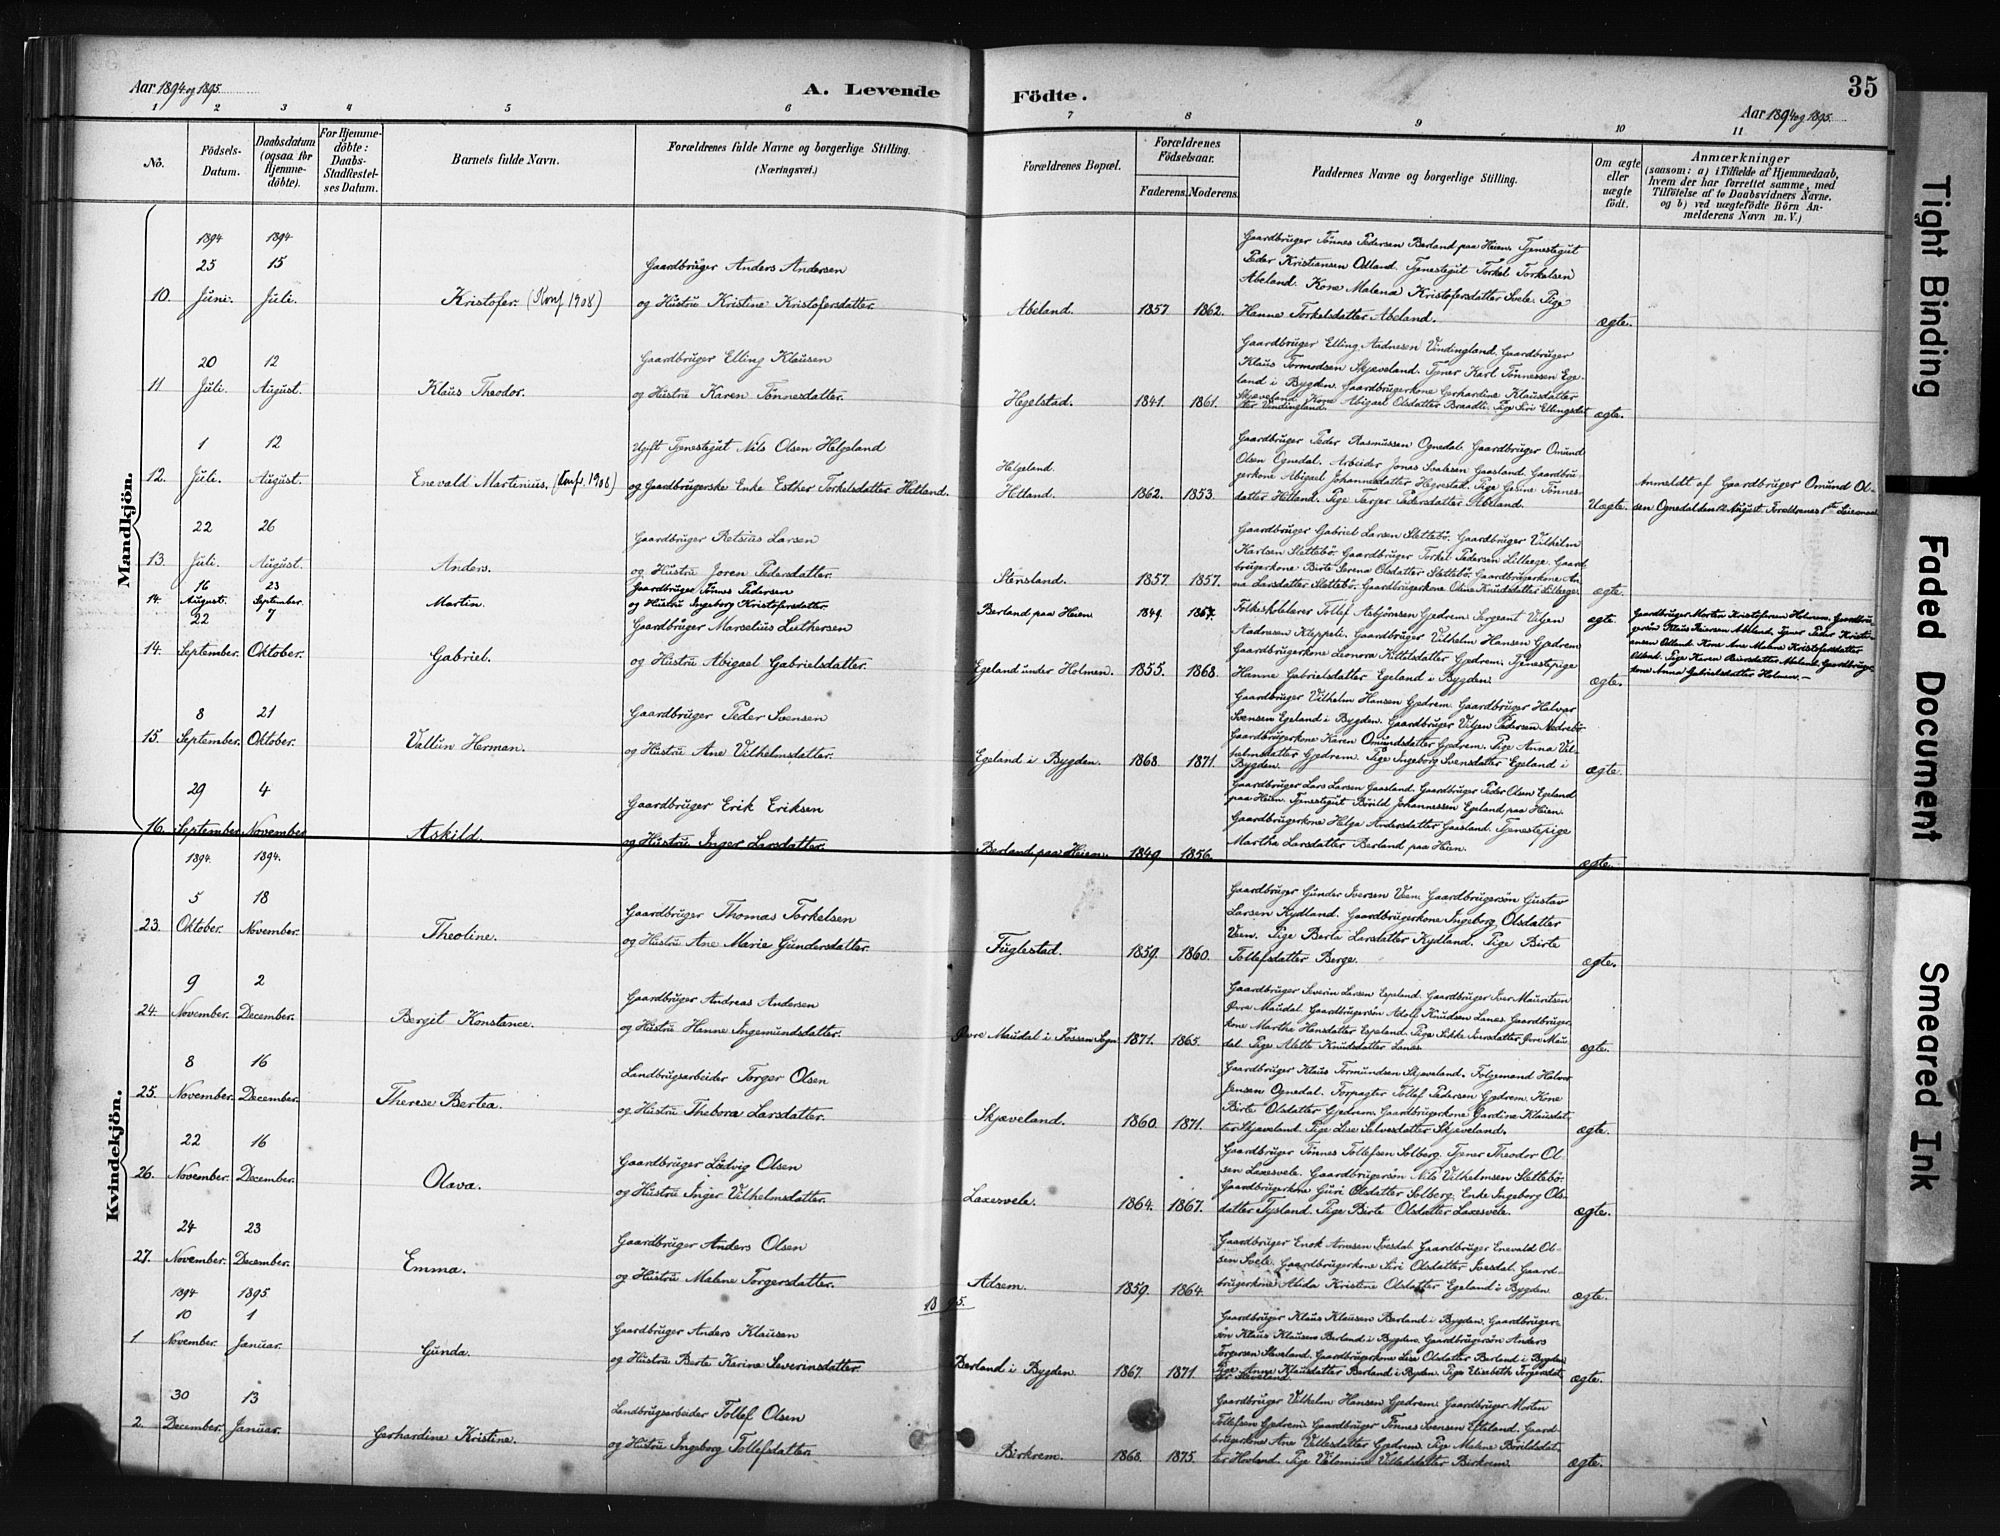 Aar 1894 og 1895.
A. Levende Födte.
35
Aar 1894 og 1895.
1 2 3 4 5 6 7 8 9 10 11
No.
Födsels-Datum.
Daabsdatum (ogsaa for Hjemme-döbte).
For Hjemme-döbte: Daabs-Stadfæstel-ses Datum.
Barnets fulde Navn.
Forældrenes fulde Navne og borgerlige Stilling. (Næringsvei.)
Forældrenes Bopæl.
Forældrenes Födselsaar.
Faderens. Moderens.
Faddernes Navne og borgerlige Stilling.
Om ægte eller uægte födt.
Anmærkninger
(saasom: a) i Tilfælde af Hjemmedaab,
hvem der har forrettet samme, med
Tilföielse af to Daabsvidners Navne.
og b) ved uægtefödte Börn An-
melderens Navn m. V.)
Mandkjön.
1894 1894
25 15
10. Juni. Juli. Kristofer. (Konf 1908)
Gaardbruger Anders Andersen
og Hustru Kristine Kristofersdatter.
Abeland. 1857 1862.
Gaardbruger Tönnes Pedersen Berland paa Heien. Tjenestegut
Peder Kristiansen Otland. Tjenestegut Torkel Torkelsen
Abeland. Kone Malena Kristofersdatter Svele. Pige
Hanne Torkelsdatter Abeland.
ægte.
20 12
11 Juli. August. Klaus Theodor.
Gaardbruger Elling Klausen
og Hustru Karen Tönnesdatter.
Hegelstad. 1841. 1861.
Gaardbruger Elling Aadnesen Vindingland. Gaardbruger
Klaus Tormodsen Skjæveland. Tjener Karl Tönnessen Ege-
land i Bygden. Gaardbrugerkone Gerhardine Klausdatter
Skjæveland. Kone Abigael Olsdatter Braadli. Pige Siri Ellingsdat-
ter Vindingland.
ægte.
1 12
12. Juli. August. Enevald Martinius. (Konf. 1908)
Ugift Tjenestegut Nils Olsen Helgeland
og Gaardbrugerske Enke Esther Torkelsdatter Hetland.
Helgeland.
Hetland. 1862. 1853.
Gaardbruger Peder Rasmussen Ognedal. Gaardbruger Omund
Olsen Ognedal. Arbeider Jonas Svalesen Gaasland. Gaardbru-
gerkone Abigael Johannesdatter Hegrestad. Pige Gesine Tönnes-
datter Hetland. Pige Tarjer Pedersdatter Abeland.
Uægte.
Anmeldt af Gaardbruger Omund Ol-
sen Ognedal den 12 August. Forældrenes 1ste Leiermaal
22 26
13. Juli. August. Anders.
Gaardbruger Retsius Larsen
og Hustru Joren Pedersdatter.
Stensland. 1857. 1857.
Gaardbruger Gabriel Larsen Slettebö. Gaardbruger Vilhelm
Karlsen Slettebö. Gaardbruger Torkel Pedersen Lillaege. Gaard-
brugerkone Birte Serena Olsdatter Slettebö. Gaardbrugerkone An-
na Larsdatter Slettebö. Gaardbrugerkone Oline Knudsdatter Lillaege.
ægte.
16 23
14. August. September. Martin.
Gaardbruger Tönnes Pedersen
og Hustru Ingeborg Kristofersdatter.
Berland paa Heien 1849. 1857.
ægte.
Gaardbruger Morten Kristofersen Holmen. Gaardbru-
gersön Klaus Abeland. Tjener Peder Kristi-
ansen Otland. Kone Ane Malene Kristofersdatter
Otland. Pige Karen Gaardbruger-
kone Anna Gabrielsdatter Holmen.
22 7
14. September. Oktober. Gabriel.
Gaardbruger Marselius Luthersen
og Hustru Abigael Gabrielsdatter.
Egeland under Holmen. 1855. 1868.
Folkeskolelærer Tollef Asbjörnsen Gjedrem. Sergeant Viljen
Aadnesen Kleppeli. Gaardbruger Vilhelm Hansen Gjedrem
Gaardbrugerkone Leonora Kittelsdatter Gjedrem. Tjenestepige
Hanne Gabrielsdatter Egeland i Bygden.
ægte.
8 21
15. September. Oktober. Vallun Herman.
Gaardbruger Peder Svensen
og Hustru Ane Vilhelmsdatter.
Egeland i Bygden. 1868. 1871.
Gaardbruger Vilhelm Hansen Gjedrem. Gaardbruger Halvar
Svensen Egeland i Bygden. Gaardbruger Viljen Pedersen Nedrebö
Gaardbrugerkone Karen Omundsdatter Gjedrem. Pige Anna Vil-
helmsdatter Gjedrem. Pige Ingeborg Svensdatter Egeland i
Bygden.
ægte.
29 4
16. September. November. Askild.
Gaardbruger Erik Eriksen
og Hustru Inger Larsdatter.
Berland paa Heien. 1849. 1856.
Gaardbruger Lars Larsen Gaasland. Gaardbruger Peder Olsen Egeland
paa Heien. Tjenestegut Böirild Johannessen Egeland paa Heien.
Gaardbrugerkone Helga Andersdatter Gaasland. Tjenestepige
Martha Larsdatter Berland paa Heien.
ægte.
Kvindekjön.
1894. 1894.
5 18
23. Oktober. November. Theoline.
Gaardbruger Thomas Torkelsen
og Hustru Ane Marie Gundersdatter.
Fuglestad. 1859. 1860.
Gaardbruger Gunder Iversen Veen. Gaardbrugersön Gustav
Larsen Kydland. Gaardbrugerkone Ingeborg Olsdatter
Veen. Pige Berta Larsdatter Kydland. Pige Birte
Tollefsdatter Berge.
ægte.
9 2
24. November. December. Bergit Konstance.
Gaardbruger Andreas Andersen
og Hustru Hanne Ingemundsdatter.
Övre Maudal i Fossan Sogn. 1871. 1865.
Gaardbruger Severin Larsen Espeland. Gaardbruger Iver Mauritsen
Övre Maudal. Gaardbrugersön Adolf Knudsen Lanes. Gaardbruger-
kone Martha Hansdatter Espeland. Pige Sikke Iversdatter Övre Mau-
dal. Pige Alette Knudsdatter Lanes.
ægte.
8 16
25. November. December. Therese Bertea.
Landbrugsarbeider Torger Olsen
og Hustru Thebora Larsdatter.
Skjæveland. 1860. 1871.
Gaardbruger Klaus Tormundsen Skjæveland. Folgemand Halvor
Jensen Ognedal. Forpagter Tollef Pedersen Gjedrem. Kone
Birte Olsdatter Gjedrem. Gaardbrugerkone Gardine Klausdat-
ter Skjæveland. Pige Lise Salvesdatter Skjæveland.
ægte.
22 16
26. November. December. Olava.
Gaardbruger Ludvig Olsen
og Hustru Inger Vilhelmsdatter.
Laxesvele. 1864. 1867.
Gaardbruger Tönnes Tollefsen Solberg. Tjener Theodor Ol-
sen Laxesvele. Gaardbrugersön Nils Vilhelmsen Slettebö.
Gaardbrugerkone Guri Olsdatter Solberg. Enke Ingeborg Ols-
datter Tysland. Pige Birte Olsdatter Laxesvele.
ægte.
24 23
27. November. December. Emma.
Gaardbruger Anders Olsen
og Hustru Malene Torgersdatter.
Adsem. 1859. 1864.
Gaardbruger Enok Arnesen Ivesdal. Gaardbruger Enevald Ol-
sen Svele. Gaardbrugerkone Siri Olsdatter Ivesdal. Gaard-
brugerkone Alida Kristine Olsdatter Egeland i Bygden.
ægte.
1895.
1894 1895
10 1
1. November. Januar. Gunda.
Gaardbruger Anders Klausen
og Hustru Berte Karine Severinsdatter.
Berland i Bygden. 1867. 1871
Gaardbruger Klaus Klausen Berland i Bygden. Gaardbruger-
sön Klaus Klausen Berland i Bygden. Gaardbrugersön Anders
Torgersen Sleveland. Gaardbrugerkone Lise Olsdatter Berland i Bygden.
Pige Anne Klausdatter Berland i Bygden. Pige Elisabeth Torgersdat-
ter Sleveland.
ægte.
30 13
2. December. Januar. Gerhardine Kristine.
Landbrugsarbeider Tollef Olsen
og Hustru Ingeborg Tollefsdatter.
Birkrem. 1868. 1875.
Gaardbruger Vilhelm Hansen Gjedrem. Gaardbruger Morten
Tollefsen Gjedrem. Gaardbruger Tönnes Svensen Efteland. Gaard-
brugerkone Ane Vellesdatter Gjedrem. Pige Malene Böirildsdat-
ter Hovland. Pige Valomine Villadsdatter Birkrem.
ægte.
Tight Binding
Faded Document
Smeared Ink